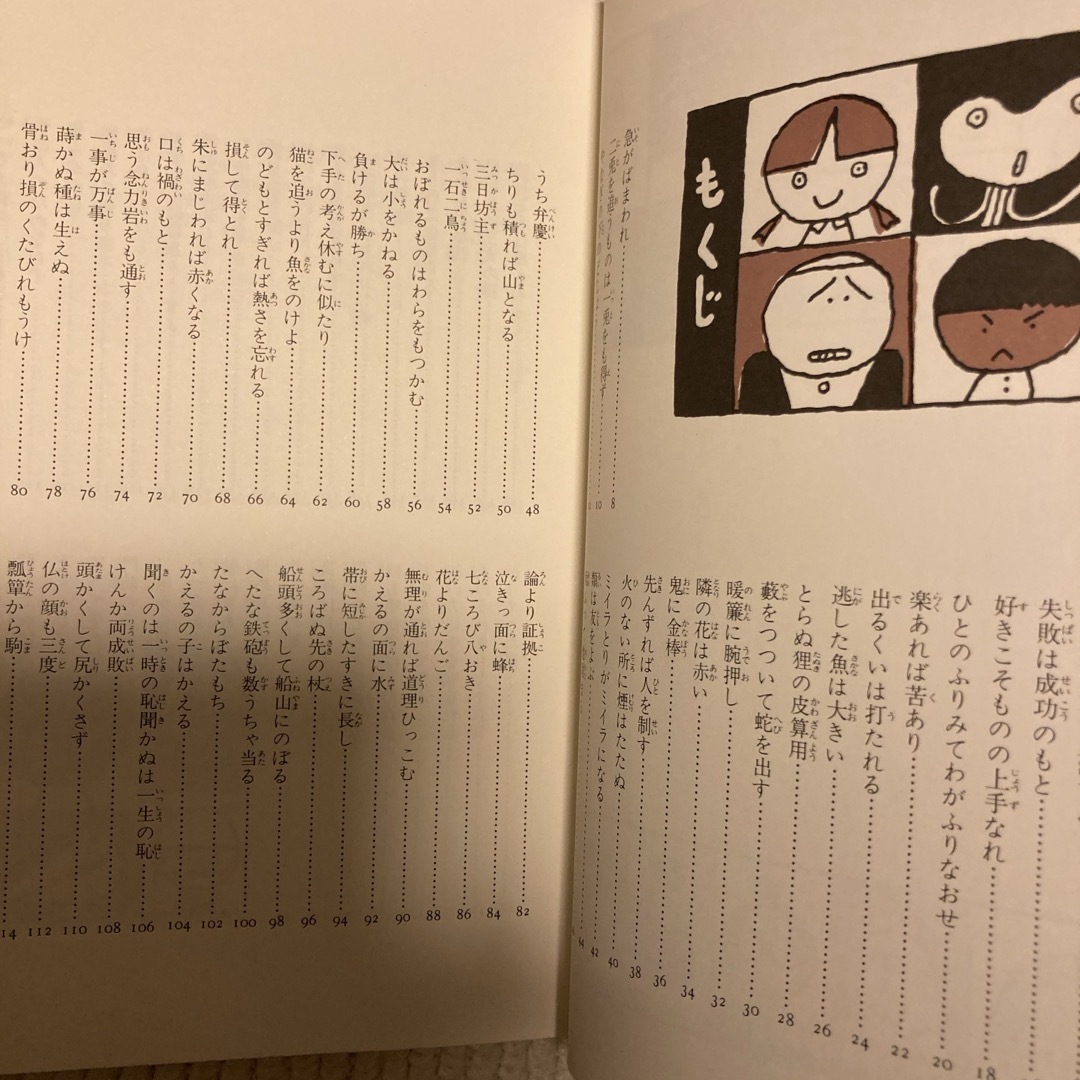 もくじ
急がばまわれ 8
二兎を追うものは一兎をも得ず 10
失敗は成功のもと
好きこそものの上手なれ 18
ひとのふりみてわがふりなおせ 20
楽あれば苦あり 22
出るくいは打たれる 24
逃した魚は大きい 26
とらぬ狸の皮算用 28
藪をつついて蛇を出す 30
暖簾に腕押し 32
隣の花は赤い 34
鬼に金棒 36
先んずれば人を制す 38
火のない所に煙はたたぬ 40
ミイラとりがミイラになる 42
類は友をよぶ 44
うち弁慶 48
ちりも積れば山となる 50
三日坊主 52
一石二鳥 54
おぼれるものはわらをもつかむ 56
大は小をかねる 58
負けるが勝ち 60
下手の考え休むに似たり 62
猫を追うより魚をのけよ 64
のどもとすぎれば熱さを忘れる 66
損して得とれ 68
朱にまじわれば赤くなる 70
口は禍のもと 72
思う念力岩をも通す 74
一事が万事 76
蒔かぬ種は生えぬ 78
骨おり損のくたびれもうけ 80
論より証拠 82
泣きっ面に蜂 84
七ころび八おき 86
花よりだんご 88
無理が通れば道理ひっこむ 90
かえるの面に水 92
帯に短したすきに長し 94
ころばぬ先の杖 96
船頭多くして船山にのぼる 98
へたな鉄砲も数うちゃ当る 100
たなからぼたもち 102
かえるの子はかえる 104
聞くのは一時の恥聞かぬは一生の恥 106
けんか両成敗 108
頭かくして尻かくさず 110
仏の顔も三度 112
瓢簞から駒 114